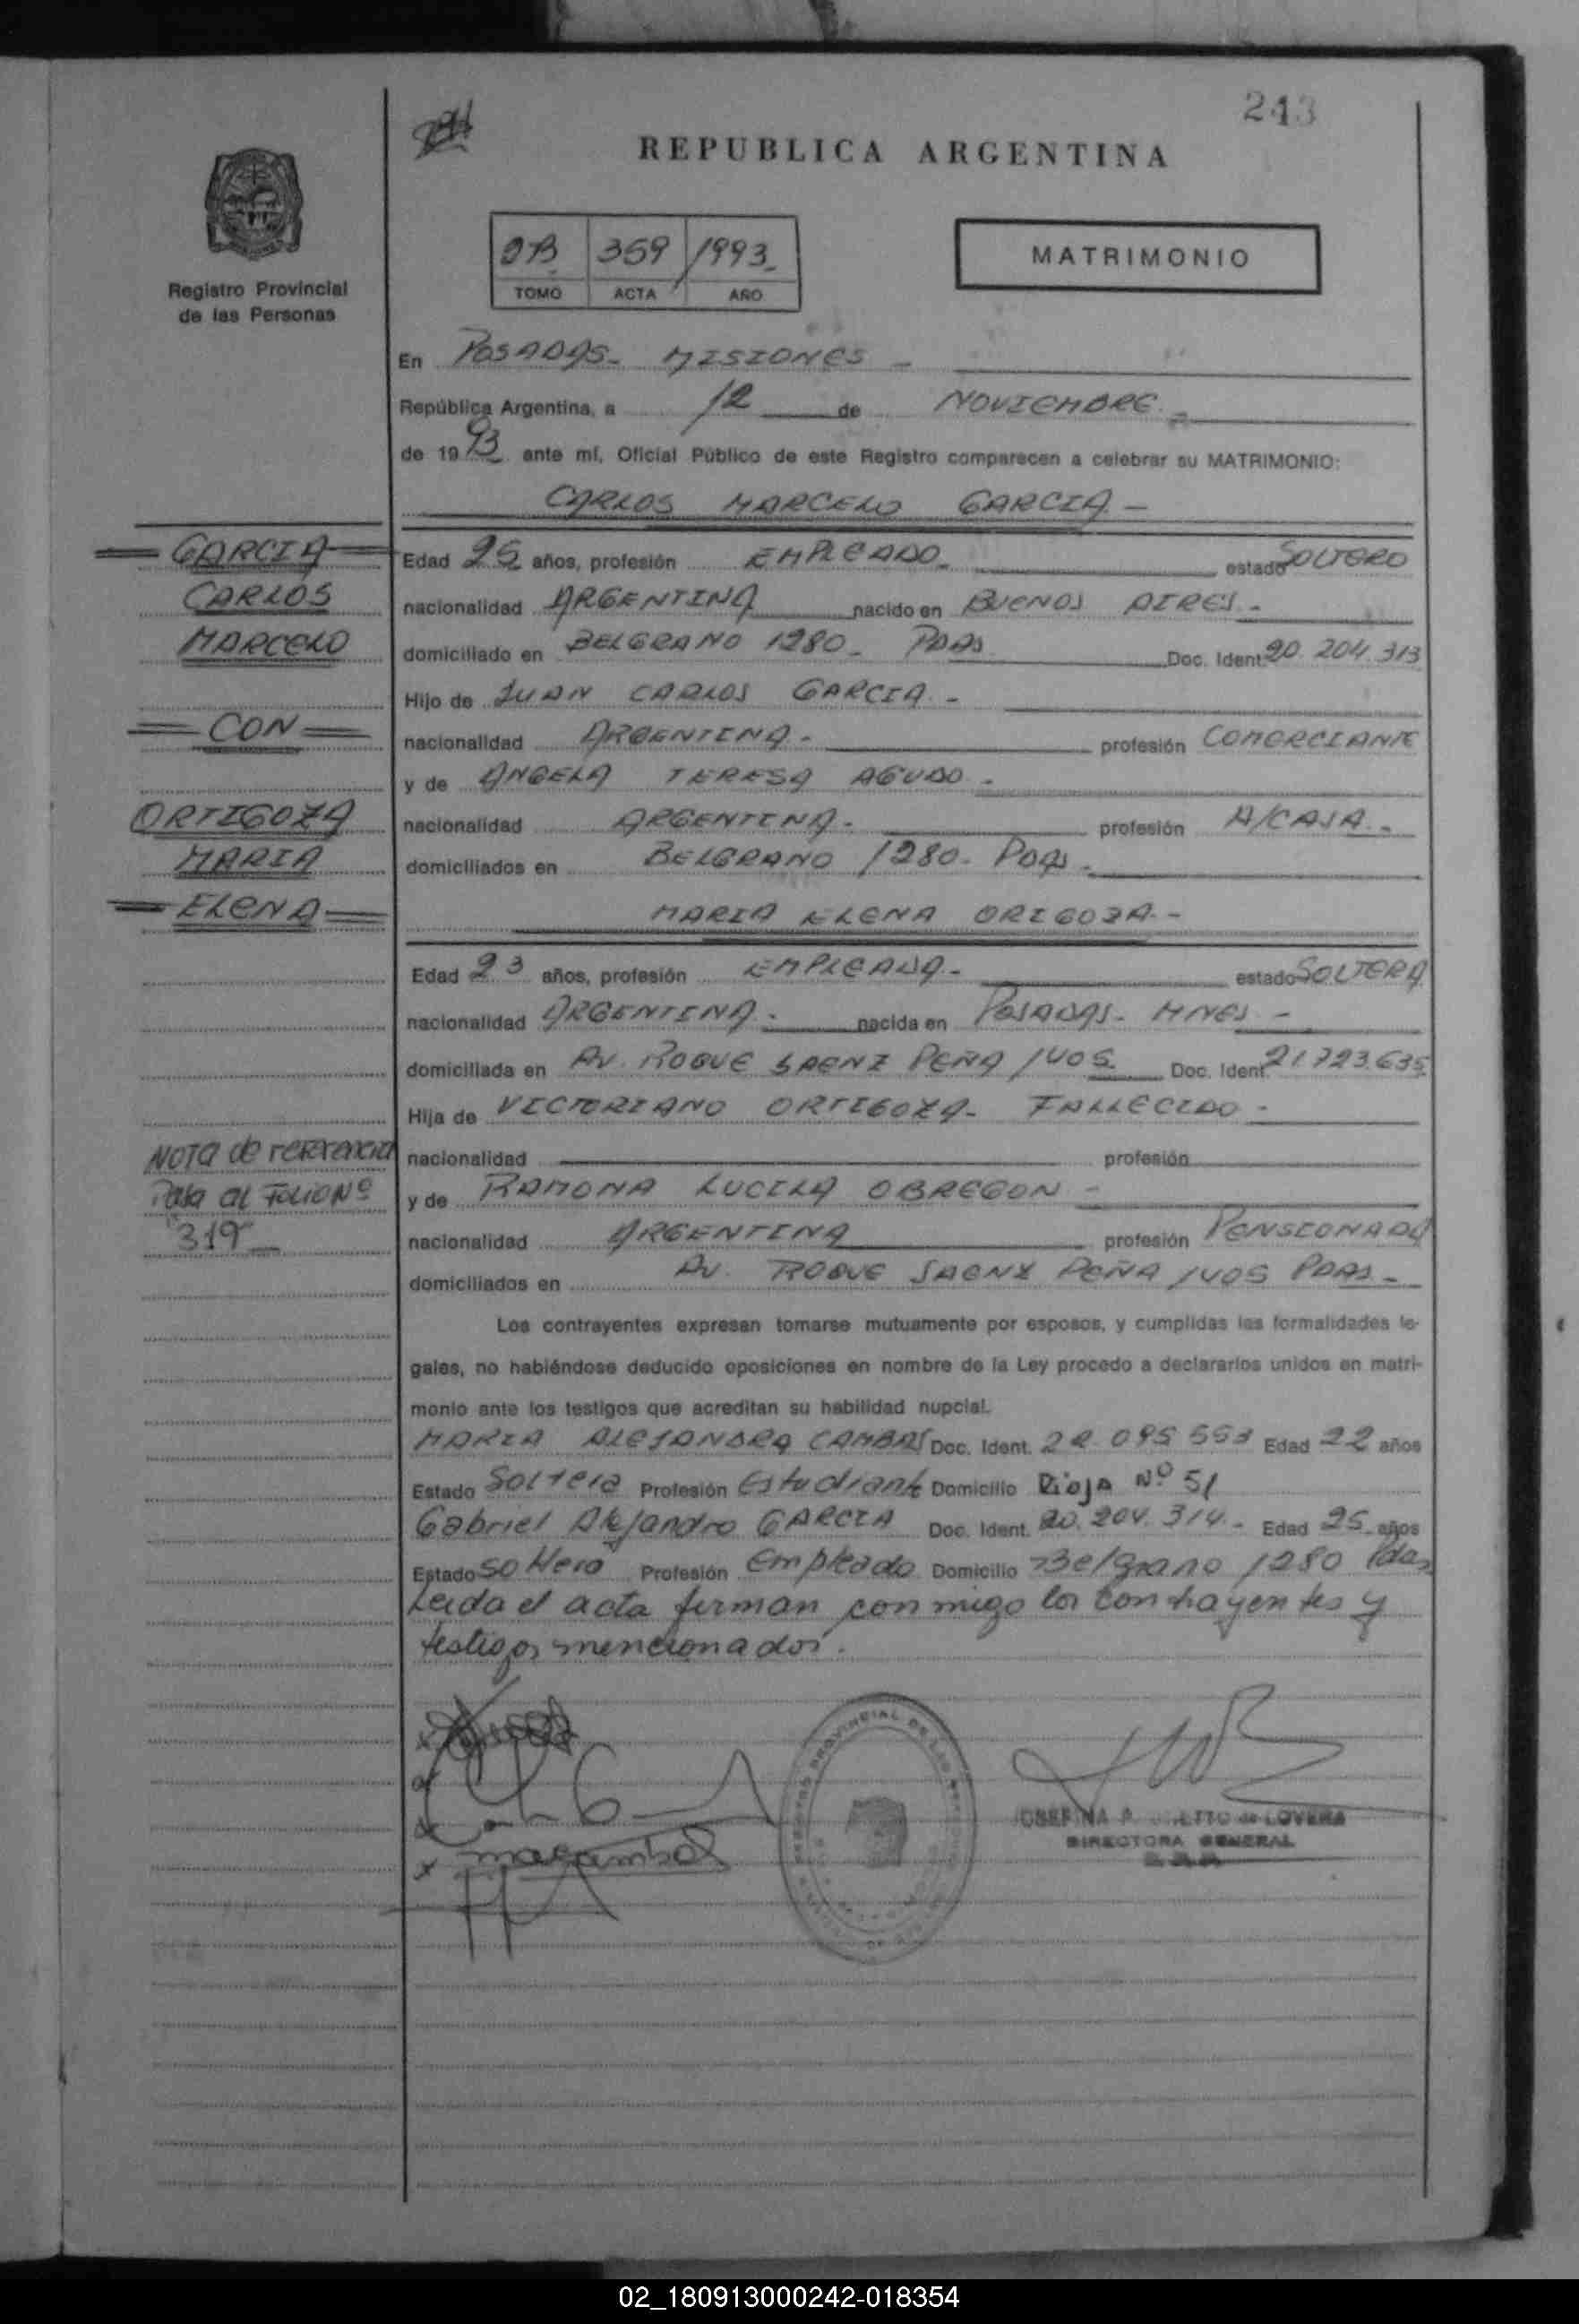 243
REPUBLICA ARGENTINA
Registro Provincial
de las Personas
2B 359 1993
TOMO ACTA AÑO
MATRIMONIO
En POSADAS - MISIONES -
República Argentina, a 12 de NOVIEMBRE -
de 1993 ante mí, Oficial Público de este Registro comparecen a celebrar su MATRIMONIO:
CARLOS MARCELO GARCIA -
GARCIA
CARLOS
MARCELO
CON
ORTIGOZA
MARIA
ELENA
Edad 25 años, profesión EMPLEADO - estado SOLTERO
nacionalidad ARGENTINA nacido en BUENOS AIRES -
domiciliado en BELGRANO 1280 - PDAS Doc. Ident. 20.204.313
Hijo de JUAN CARLOS GARCIA -
nacionalidad ARGENTINA - profesión COMERCIANTE
y de ANGELA TERESA AGUDO -
nacionalidad ARGENTINA - profesión A/CASA -
domiciliados en BELGRANO 1280 - Pdas -
MARIA ELENA ORIGOZA -
Edad 23 años, profesión EMPLEADA - estado SOLTERA
nacionalidad ARGENTINA - nacida en POSADAS - MNES -
domiciliada en AV. ROQUE SAENZ PEÑA 1405 Doc. Ident. 21.723.635
Hija de VICTORIANO ORTIGOZA - FALLECIDO -
nacionalidad profesión
y de RAMONA LUCILA OBREGON -
nacionalidad ARGENTINA profesión PENSIONADA
domiciliados en AV. ROQUE SAENZ PEÑA 1405 PDAS -
NOTA de referencia
Pasa al FOLIO Nº
319
Los contrayentes expresan tomarse mutuamente por esposos, y cumplidas las formalidades le-
gales, no habiéndose deducido oposiciones en nombre de la Ley procedo a declararlos unidos en matri-
monio ante los testigos que acreditan su habilidad nupcial.
MARIA ALEJANDRA CAMBAS Doc. Ident. 22.095 553 Edad 22 años
Estado Soltera Profesión Estudiante Domicilio Rioja Nº 51
Gabriel Alejandro GARCIA Doc. Ident. 20.204.314 - Edad 25 años
Estado Soltero Profesión Empleado Domicilio Belgrano 1280 Pdas
Leida el acta firman conmigo los contrayentes y
testigos mencionados.
REGISTRO PROVINCIAL DE LAS
JOSEFINA P. de LOVERA
DIRECTORA GENERAL
02_180913000242-018354